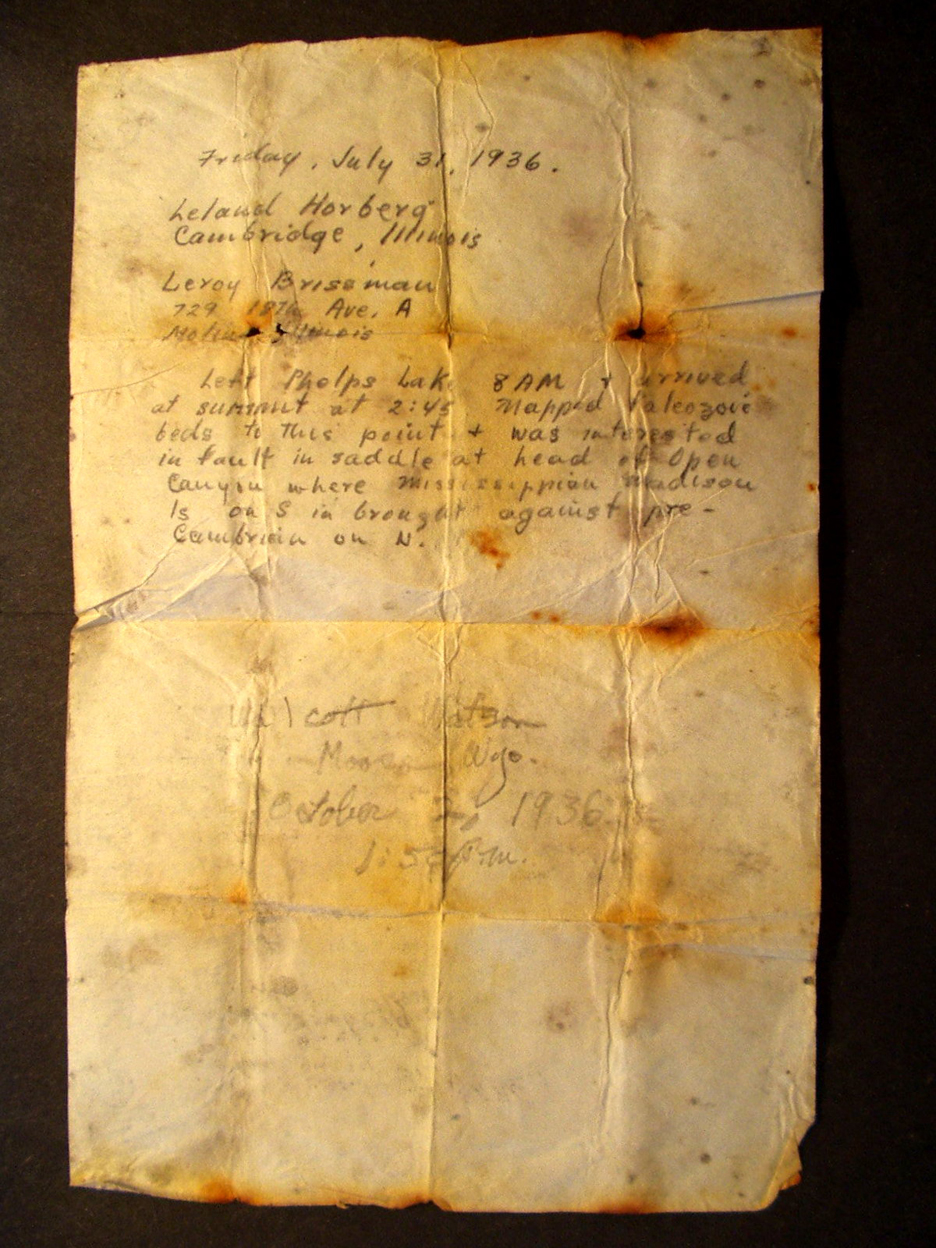 Friday, July 31, 1936.
Leland Horberg
Cambridge, Illinois
Leroy Brissman
729 18th Ave. A
Moline, Illinois
Left Phelps Lake 8 AM + arrived
at summit at 2:45 Mapped Paleozoic
beds to this point + was interested
in fault in saddle at head of Open
Canyon where Mississippian Madison
ls on S is brought against pre-
Cambrian on N.
Walcott Watson
Moose Wyo.
October 2, 1936
P.M.